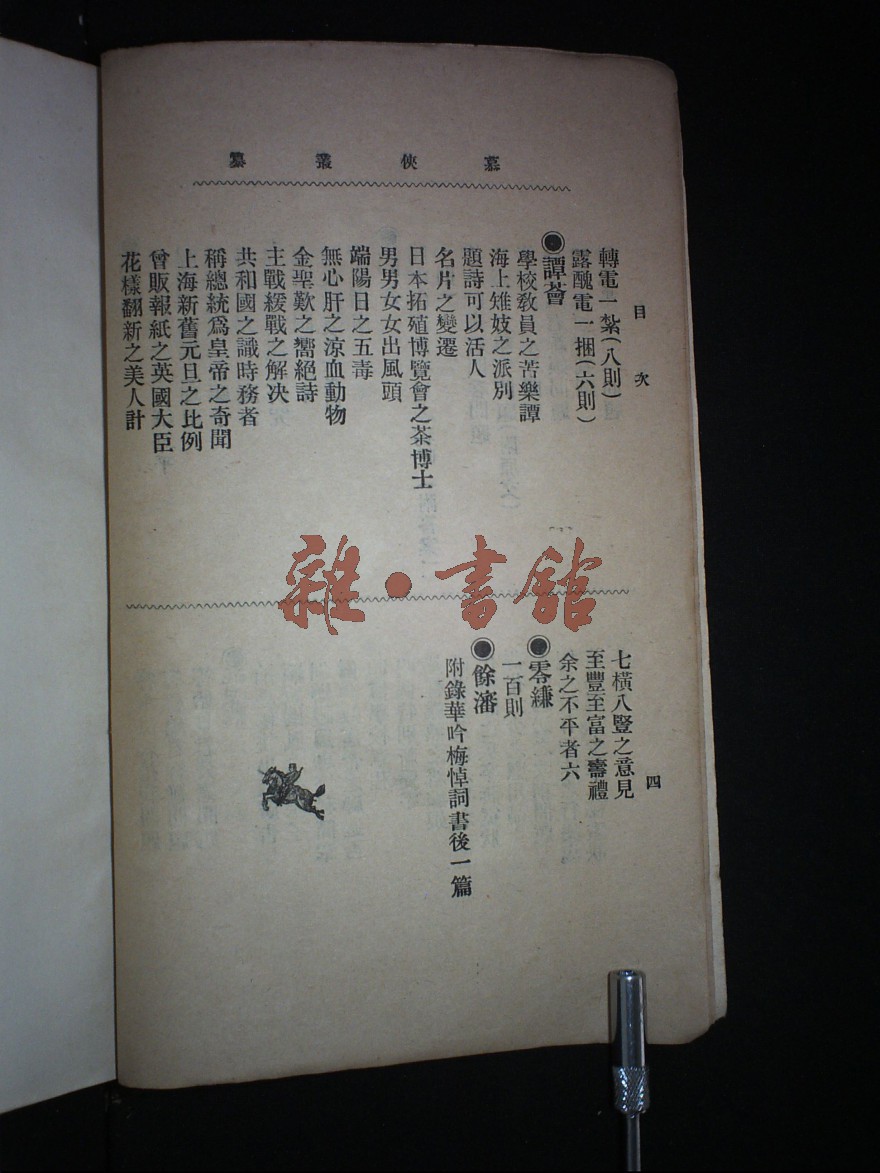 慕俠叢纂
目次
四
轉電一紮(八則)
露醜電一捆(六則)
◉譚薈
學校敎員之苦樂譚
海上雉妓之派別
題詩可以活人
名片之變遷
日本拓殖博覽會之茶博士
男男女女出風頭
端陽日之五毒
無心肝之涼血動物
金聖歎之嚮絕詩
主戰緩戰之解决
共和國之識時務者
稱總統爲皇帝之奇聞
上海新舊元旦之比例
曾販報紙之英國大臣
花樣翻新之美人計
七橫八豎之意見
至豐至富之壽禮
余之不平者六
◉零縑
一百則
◉餘瀋
附錄華吟梅悼詞書後一篇
雜·書館